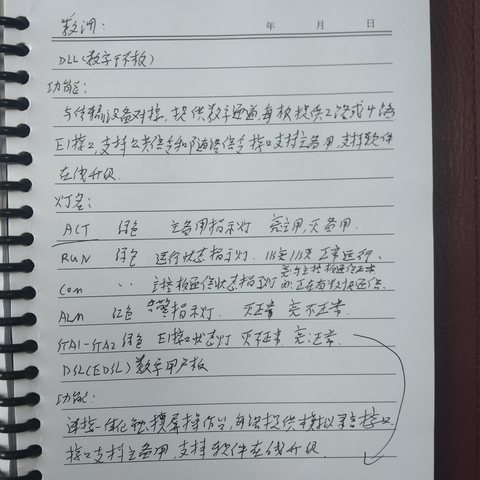 数调:
年 月 日
DLL(数字环板)
功能:
与传输设备对接,提供数字通道每板提供2路或4路
E1接口,支持公共信令和随路信令,接口支持主备用,支持软件
在线升级.
灯名:
ACT 绿色 主备用指示灯 亮主用,灭备用.
RUN 绿色 运行状态指示灯. 1s亮1s灭正常运行.
Com 〃 主控板通信状态指示灯 亮与主控板通信正常
闪正在有数据通信.
ALM 红色 告警指示灯. 灭正常 亮不正常.
STA1-STA2 绿色 E1接口状态灯 灭不正常 亮:正常.
DSL(EDSL)数字用户板
功能:
连接一体化触摸屏操作台,每路提供模拟录音接口
接口支持主备用,支持软件在线升级.